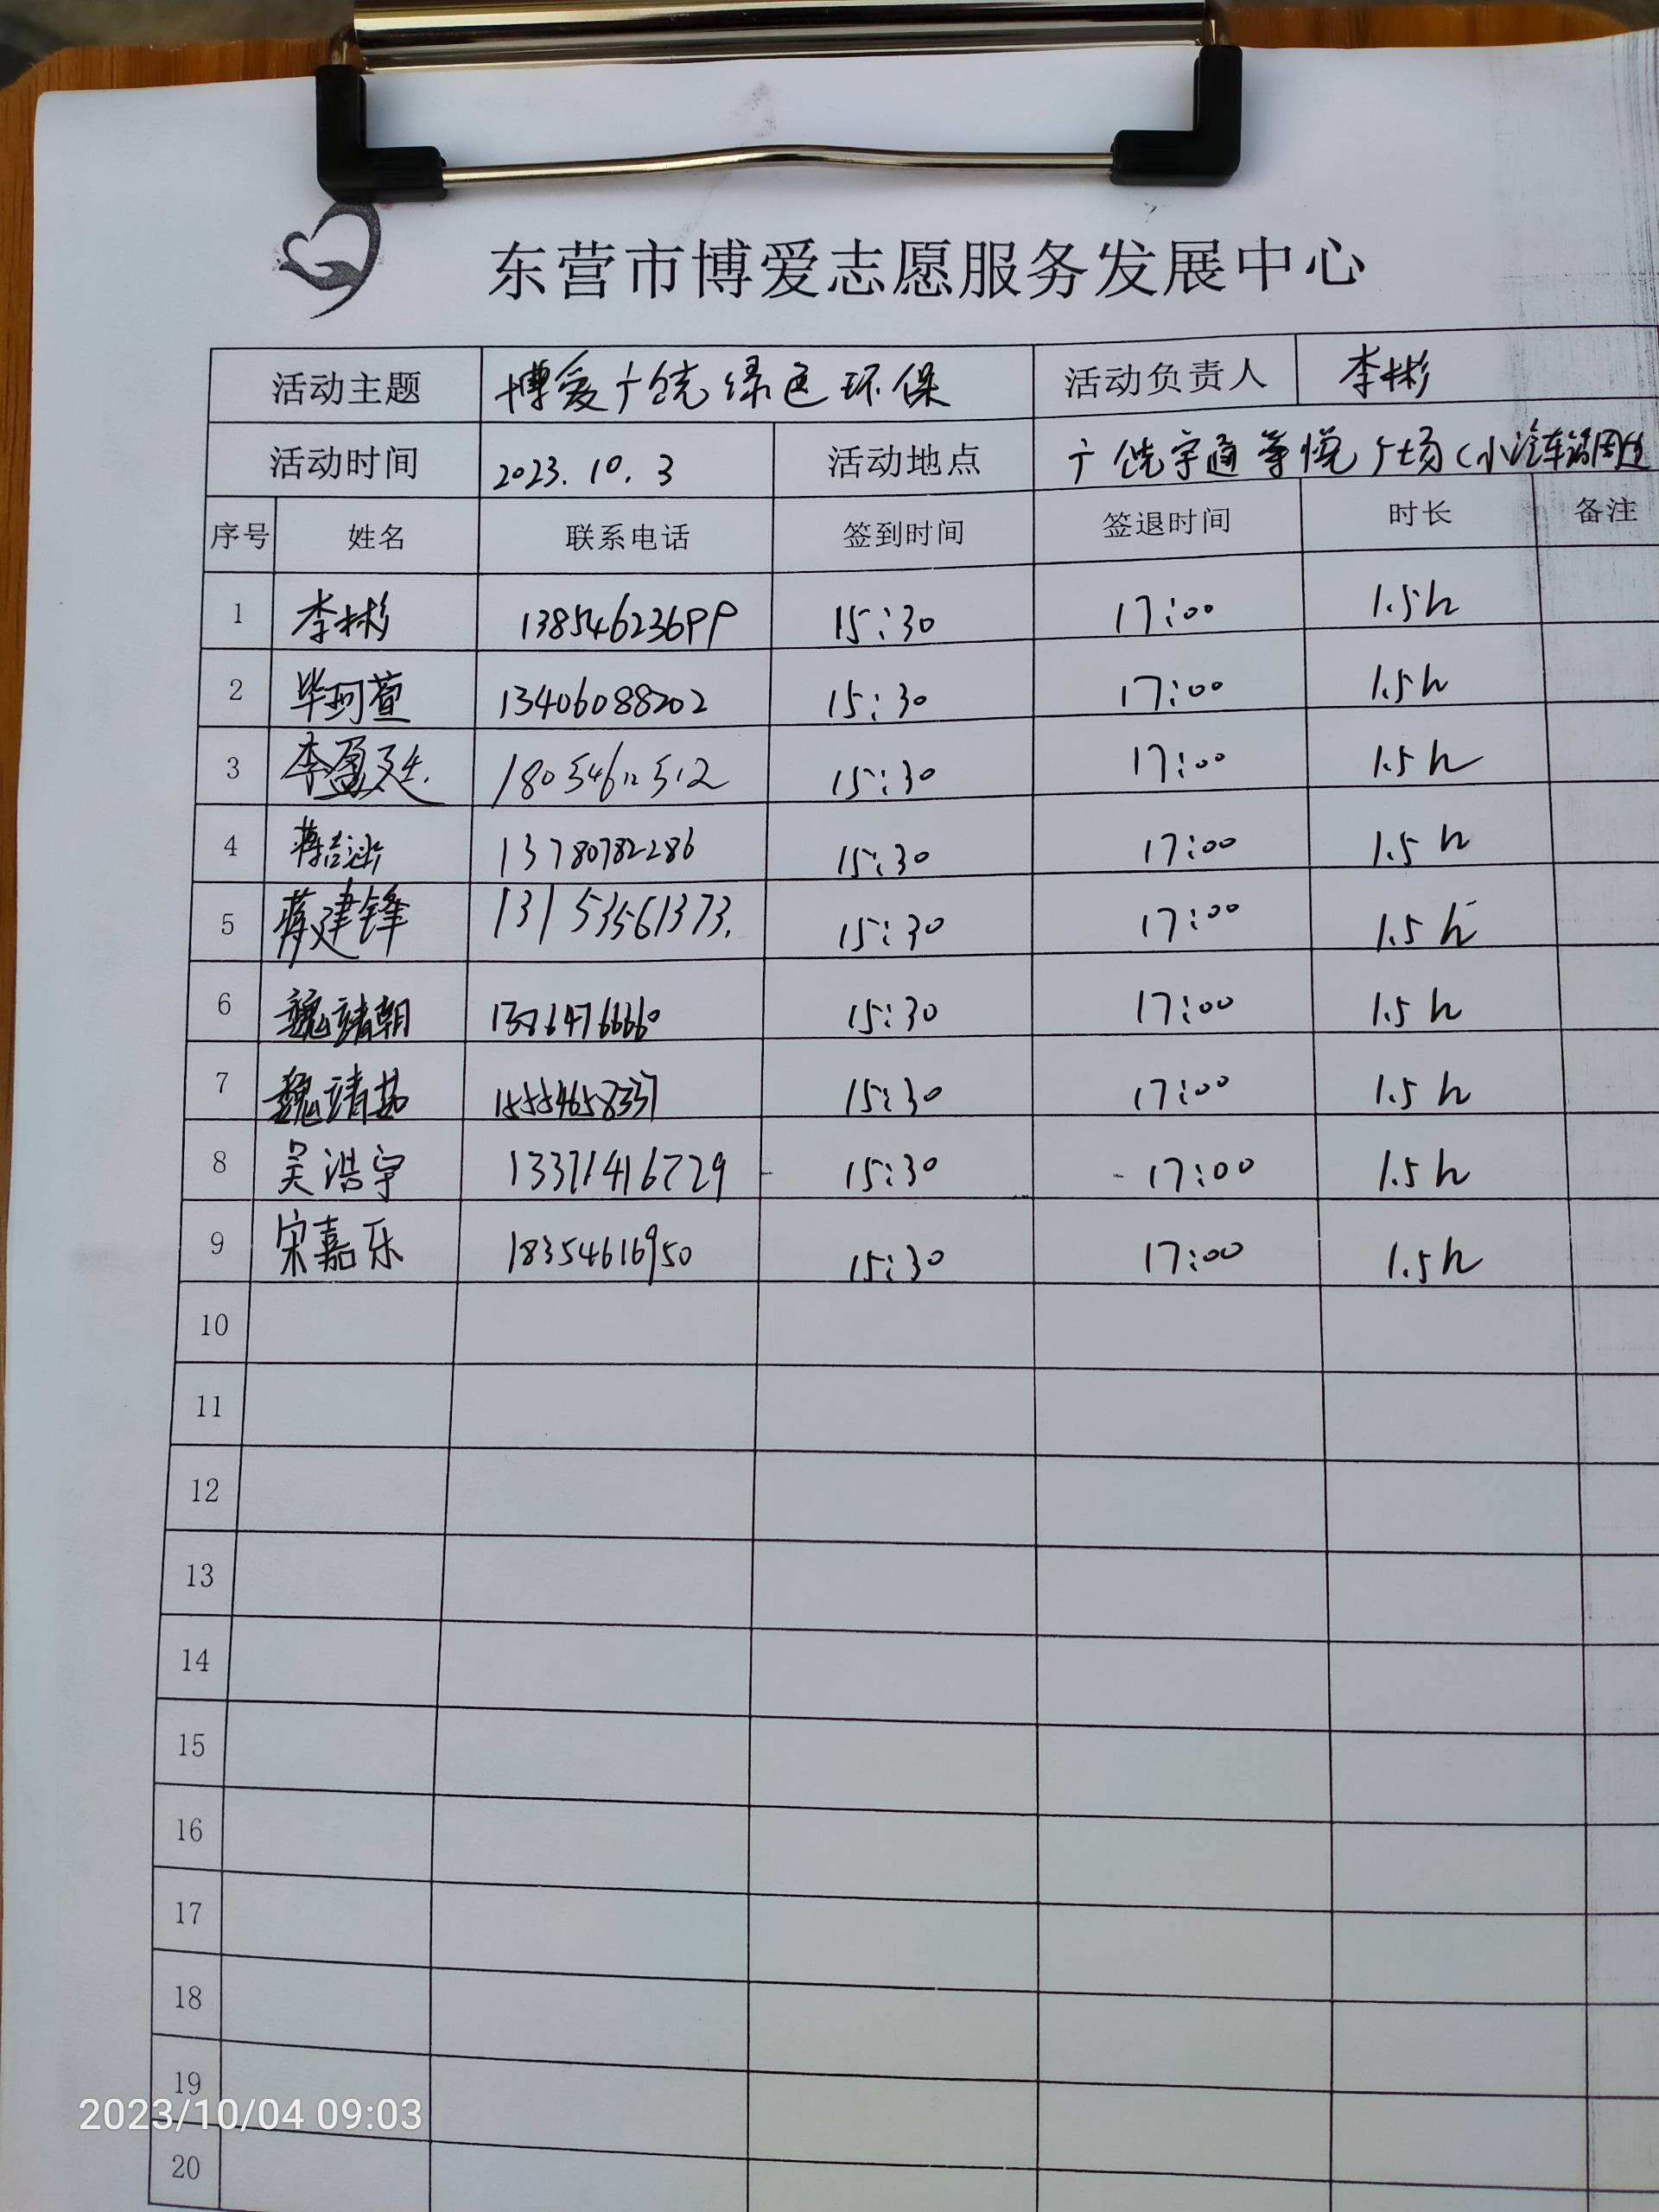 东营市博爱志愿服务发展中心
活动主题 博爱广饶绿色环保 活动负责人 李彬
活动时间 2023.10.3 活动地点 广饶宇通等悦广场(小汽车站周边
序号 姓名 联系电话 签到时间 签退时间 时长 备注
1 李彬 13854623699 15:30 17:00 1.5h
2 毕珂萱 13406088202 15:30 17:00 1.5h
3 李盈廷 15:30 17:00 1.5h
4 13780782286 15:30 17:00 1.5h
5 蒋建锋 13153561373. 15:30 17:00 1.5h
6 魏靖朝 15:30 17:00 1.5h
7 魏靖茹 15:30 17:00 1.5h
8 吴浩宇 13371416729 15:30 17:00 1.5h
9 宋嘉乐 18354616950 15:30 17:00 1.5h
10
11
12
13
14
15
16
17
18
19
2023/10/04 09:03
20